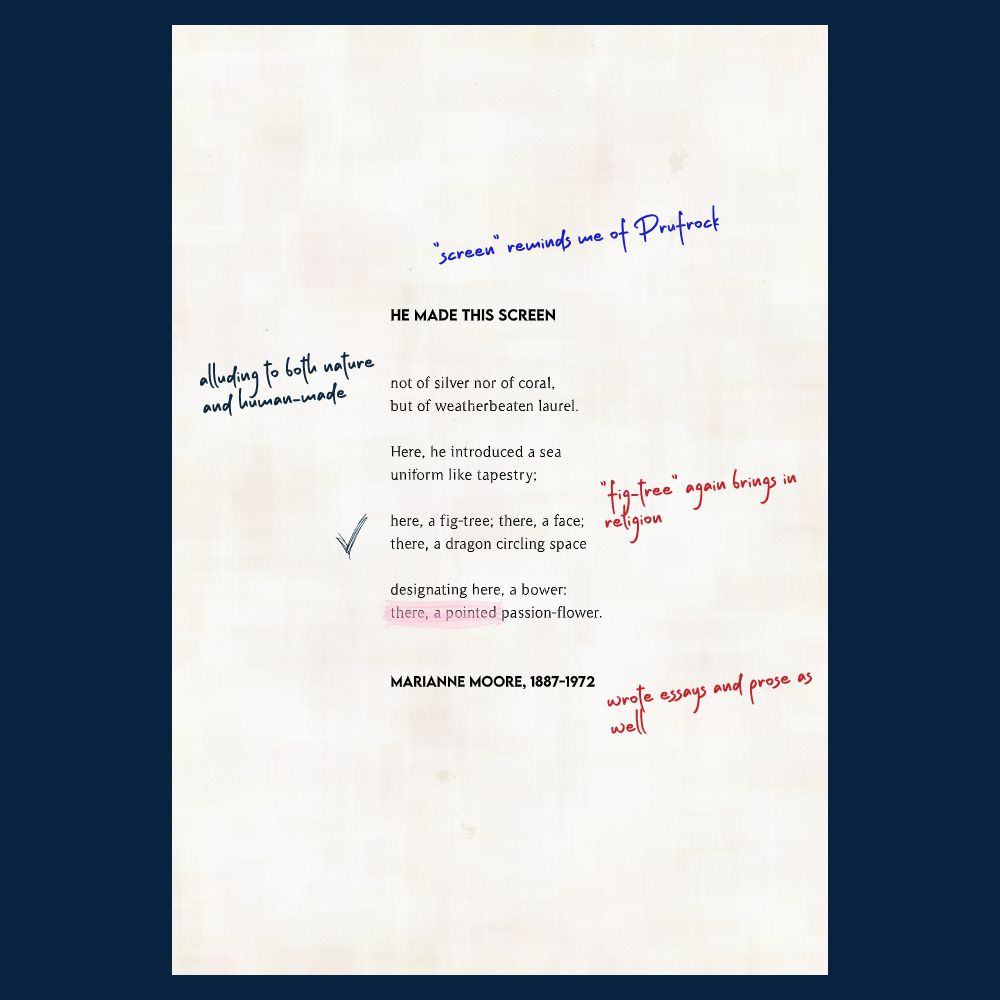 "screen" reminds me of Prufrock
HE MADE THIS SCREEN
alluding to both nature
and human-made
not of silver nor of coral,
but of weatherbeaten laurel.
Here, he introduced a sea
uniform like tapestry;
"fig-tree" again brings in
religion
here, a fig-tree; there, a face;
there, a dragon circling space
designating here, a bower:
there, a pointed passion-flower.
MARIANNE MOORE, 1887-1972
wrote essays and prose as
well